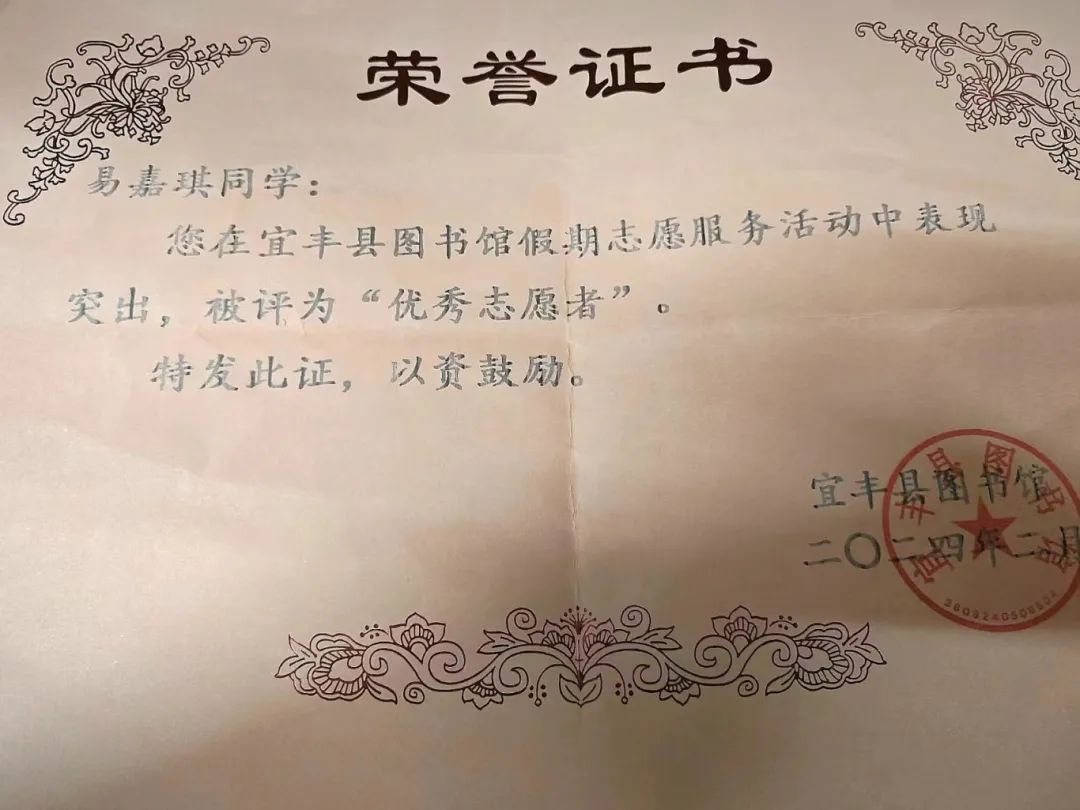 荣誉证书
易嘉琪同学：
您在宜丰县图书馆假期志愿服务活动中表现
突出，被评为“优秀志愿者”。
特发此证，以资鼓励。
宜丰县图书馆
二〇二四年二月
宜丰县图书馆